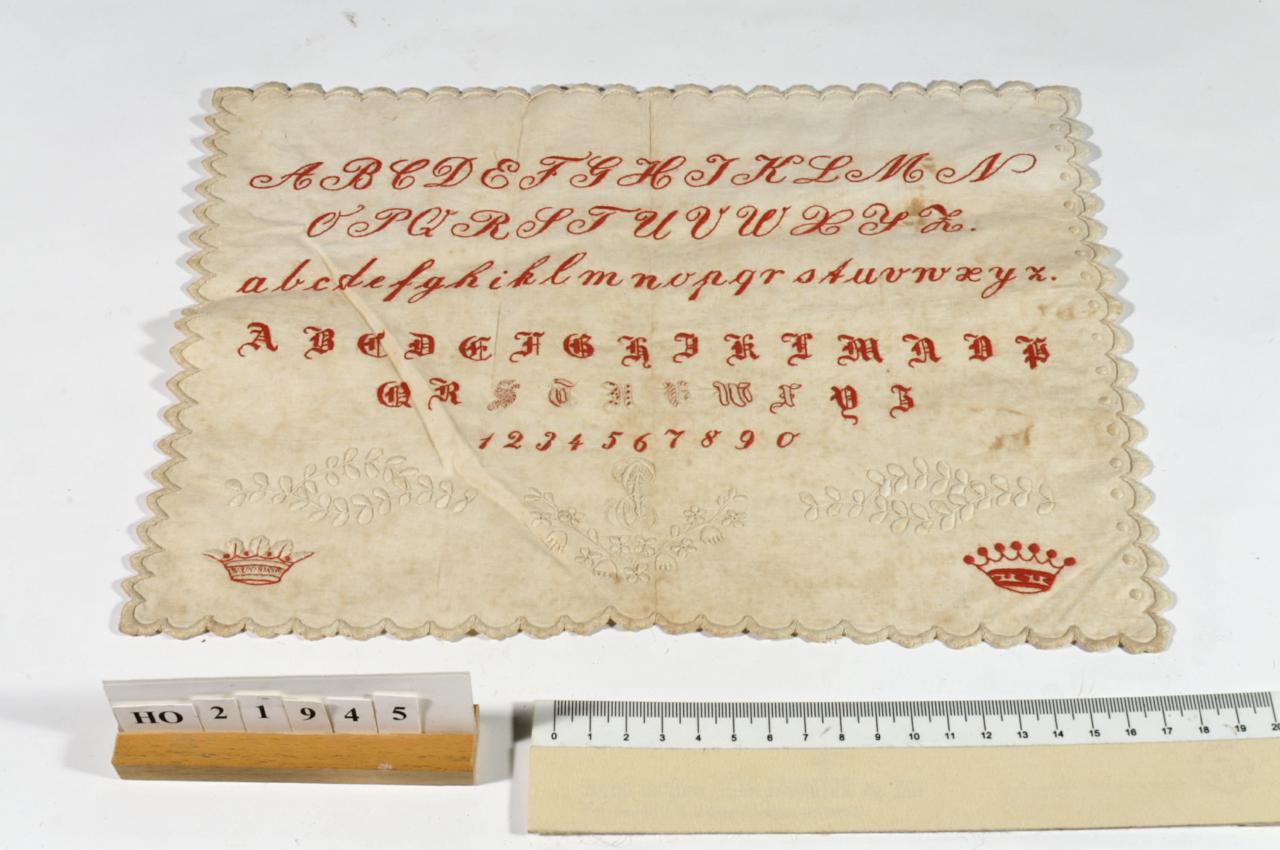 A B C D E F G H I K L M N
O P Q R S T U V W X Y Z.
a b c d e f g h i k l m n o p q r s t u v w x y z.
A B C D E F G H I K L M N O P
Q R S T U V W X Y Z
1 2 3 4 5 6 7 8 9 0
HO 2 1 9 4 5
0 1 2 3 4 5 6 7 8 9 10 11 12 13 14 15 16 17 18 19 20